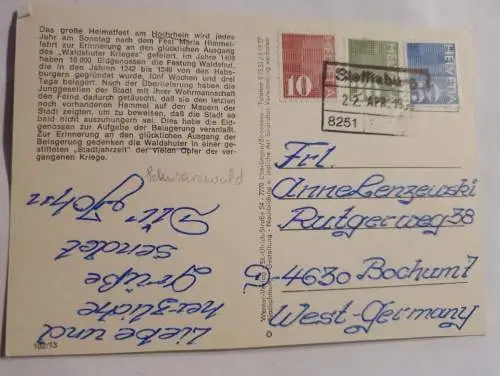 Das große Heimatfest am Hochrhein wird jedes
Jahr am Sonntag nach dem Fest Maria Himmel-
fahrt zur Erinnerung an den glücklichen Ausgang
des „Waldshuter Krieges" gefeiert. Im Jahre 1468
haben 16 000 Eidgenossen die Festung Waldshut,
die in den Jahren 1242 bis 1249 von den Habs-
burgern gegründet wurde, fünf Wochen und drei
Tage belagert. Nach der Überlieferung haben die
Junggesellen der Stadt mit ihrer Wehrmannschaft
den Feind dadurch getäuscht, daß sie den letzten
noch vorhandenen Hammel auf den Mauern der
Stadt zeigten, um zu beweisen, daß die Stadt so
bald nicht auszuhungern sei. Dies habe die Eid-
genossen zur Aufgabe der Belagerung veranlaßt.
Zur Erinnerung an den glücklichen Ausgang der
Belagerung gedenken die Waldshuter in einer ge-
stifteten „Stadtjahrzeit" der vielen Opfer der ver-
gangenen Kriege.
Schwarzwald
Liebe und
herzliche
Grüße
sendet
Dir
102/13
10
HELVETIA
HELVETIA
HELVETIA
22. APR. 19
8251
Frl.
Anne Lenzewski
Rutgerweg 38
D-4630 Bochum 1
West-Germany